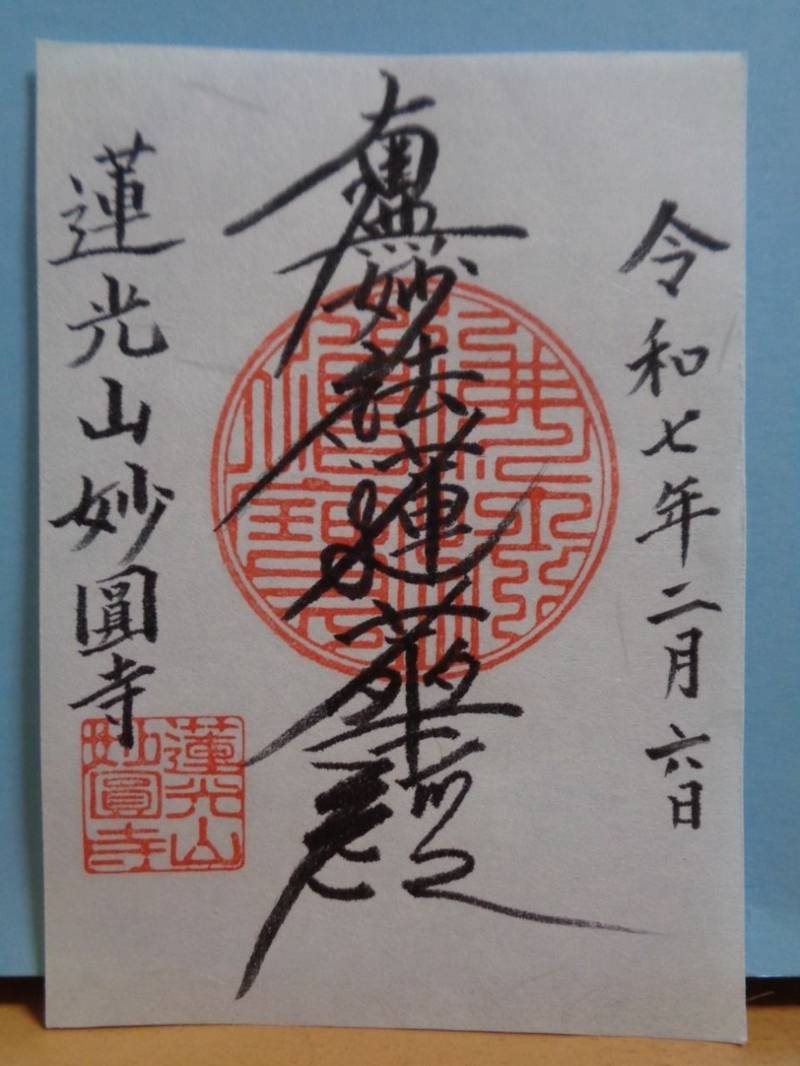 令和七年二月六日
南無妙法蓮華経
蓮光山妙圓寺
蓮光山
妙圓寺